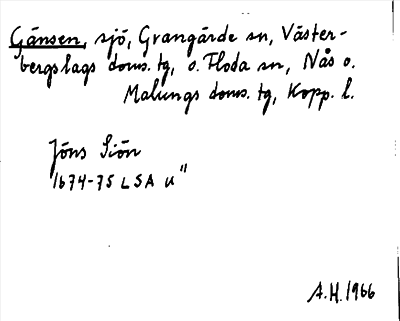 Gänsen, sjö, Grangärde sn, Väster-
bergslags doms. tg, o. Floda sn, Nås o.
Malungs doms. tg, Kopp. l.
Jöns Siön
1674-75 LSA u"
A.H. 1966